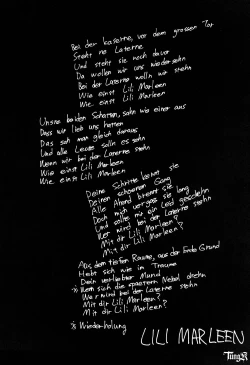 Bei der Kaserne, vor dem grossen Tor
Steht ne Laterne
Und steht sie noch davor
Da wollen wir uns wiedersehn
Bei der Laterne wolln wir stehn
Wie einst Lili Marleen
Wie einst Lili Marleen
Unsre beiden Schatten, sahn wie einer aus
Dass wir lieb uns hatten
Das sah man gleich daraus
Und alle Leute solln es sehn
Wenn wir bei der Laterne stehn
Wie einst Lili Marleen
Wie einst Lili Marleen
Deine Schritte kennt sie
Deinen schönen Gang
Alle Abend brennt sie lang
Doch mich vergass sie lang
Und sollte mir ein Leid geschehn
Wer wird bei der Laterne stehn
Mit dir Lili Marleen?
Mit dir Lili Marleen?
Aus dem tiefen Raume, aus der Erde Grund
Hebt sich wie im Traume
Dein verliebter Mund
※ Wenn sich die spaeten Nebel drehn
Wer wird bei der Laterne stehn
Mit dir Lili Marleen?
Mit dir Lili Marleen?
※ Wiederholung
LILI MARLEEN